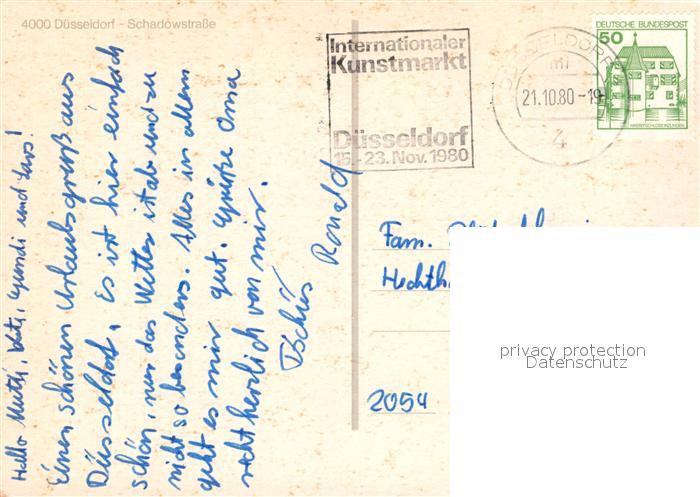 4000 Düsseldorf - Schadowstraße
Hallo Mutti, Vati, Gundi und Lars!
Einen schönen Urlaubsgruß aus
Düsseldorf. Es ist hier einfach
schön, nur das Wetter ist ab und zu
nicht so besonders. Alles in allem
geht es mir gut. Grüße Oma
recht herzlich von mir.
Tschüs Ronald
Internationaler
Kunstmarkt
Düsseldorf
15.-23. Nov. 1980
DÜSSELDORF
mi
21.10.80-19
4
DEUTSCHE BUNDESPOST
50
WASSERSCHLOSS INZLINGEN
Fam.
Hechth
2054
privacy protection
Datenschutz